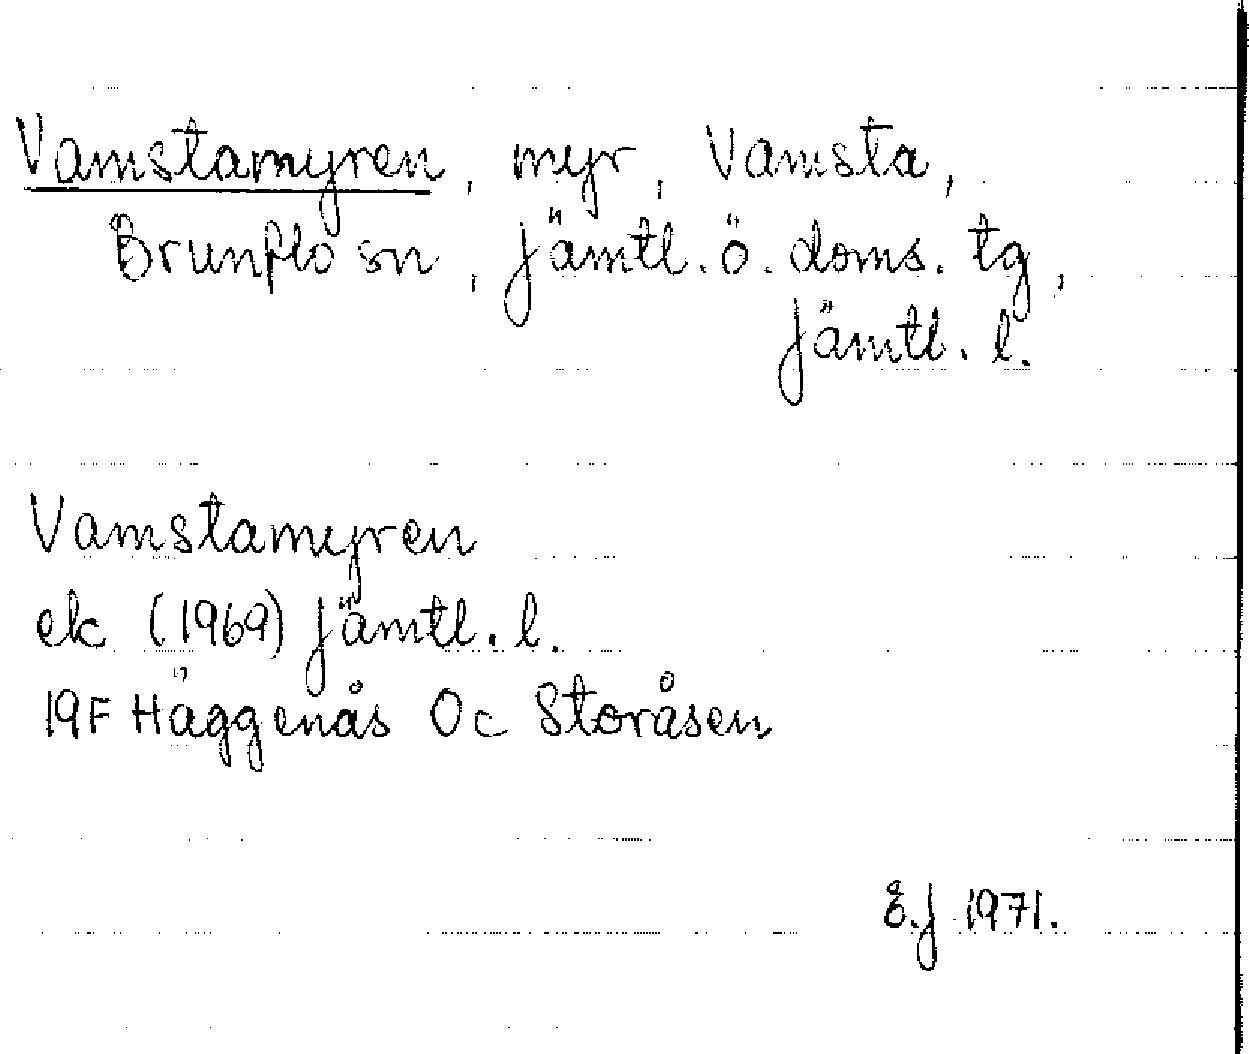 Vamstamyren, myr, Vamsta,
Brunflo sn, Jämtl. ö. doms. tg,
Jämtl. l.
Vamstamyren
ek (1969) Jämtl. l.
19F Häggenås 0c Storåsen
E.J 1971.